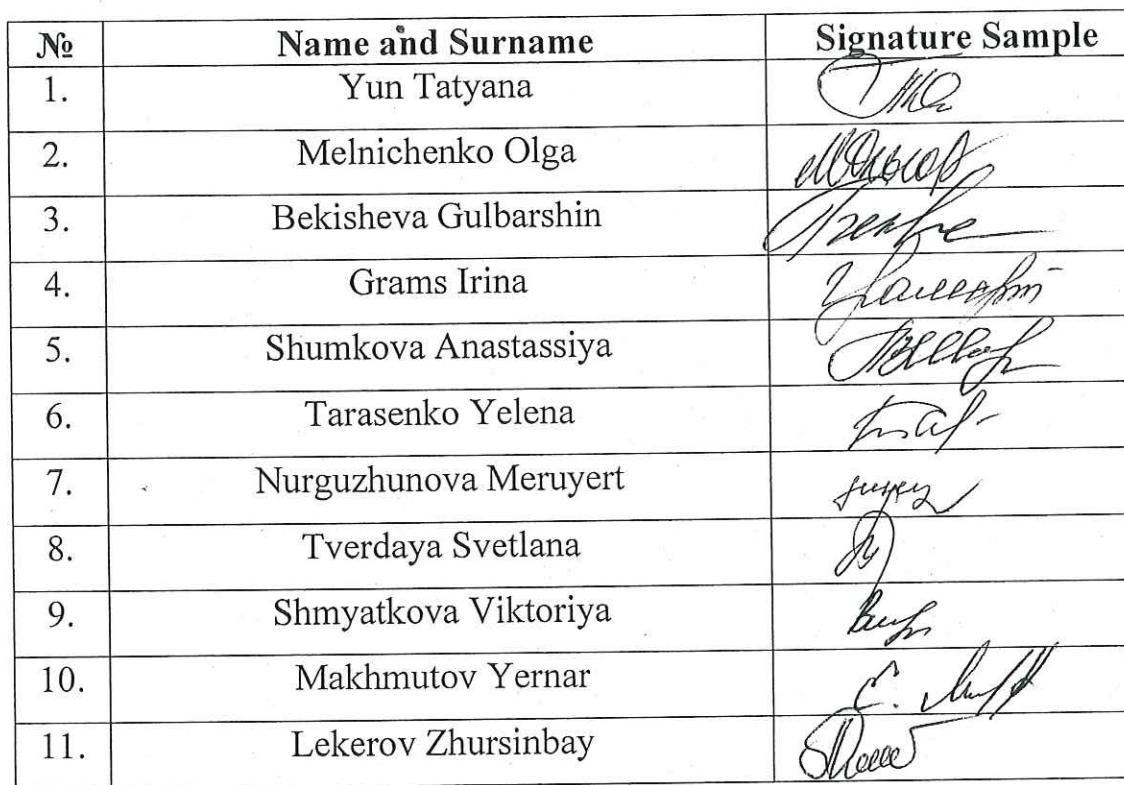 № Name and Surname Signature Sample
1. Yun Tatyana
2. Melnichenko Olga
3. Bekisheva Gulbarshin
4. Grams Irina
5. Shumkova Anastassiya
6. Tarasenko Yelena
7. Nurguzhunova Meruyert
8. Tverdaya Svetlana
9. Shmyatkova Viktoriya
10. Makhmutov Yernar
11. Lekerov Zhursinbay